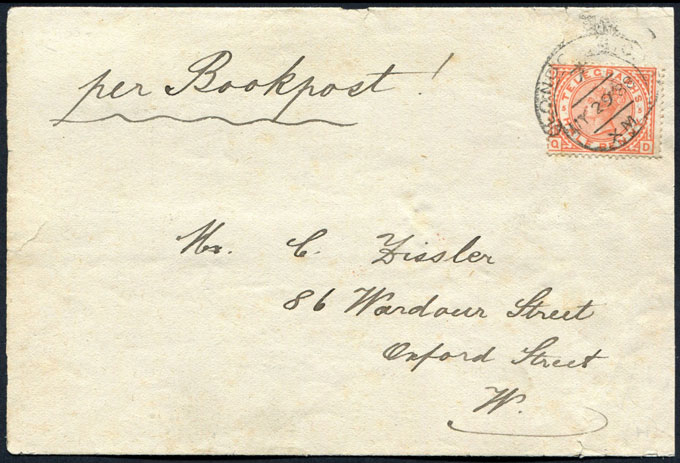 per Bookpost!
TELEGRAPHS
Q D
Mr. C. Zissler
86 Wardour Street
Oxford Street
W.